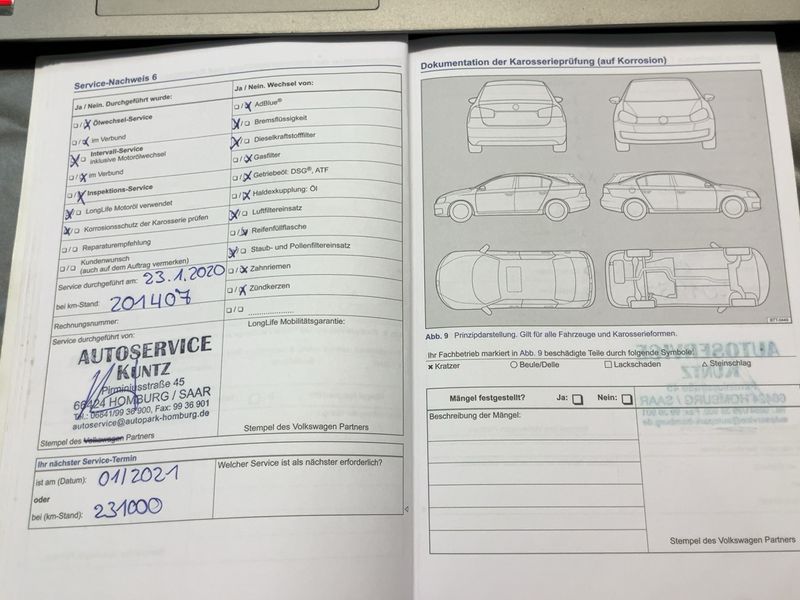 Service-Nachweis 6
Ja / Nein. Durchgeführt wurde:
Ölwechsel-Service
im Verbund
Intervall-Service
inklusive Motorölwechsel
im Verbund
Inspektions-Service
LongLife Motoröl verwendet
Korrosionsschutz der Karosserie prüfen
Reparaturempfehlung
Kundenwunsch
(auch auf dem Auftrag vermerken)
Service durchgeführt am: 23.1.2020
bei km-Stand: 201407
Rechnungsnummer:
Service durchgeführt von:
AUTOSERVICE
KUNTZ
Pirminiusstraße 45
66424 HOMBURG / SAAR
Tel.: 06841/99 36 900, Fax: 99 36 901
autoservice@autopark-homburg.de
Stempel des Volkswagen Partners
Ja / Nein. Wechsel von:
AdBlue®
Bremsflüssigkeit
Dieselkraftstofffilter
Gasfilter
Getriebeöl: DSG®, ATF
Haldexkupplg.: Öl
Luftfiltereinsatz
Reifenfüllflasche
Staub- und Pollenfiltereinsatz
Zahnriemen
Zündkerzen
LongLife Mobilitätsgarantie:
Stempel des Volkswagen Partners
Ihr nächster Service-Termin
ist am (Datum): 01/2021
oder
bei (km-Stand): 231000
Welcher Service ist als nächster erforderlich?
Dokumentation der Karosserieprüfung (auf Korrosion)
B7T-0449
Abb. 9 Prinzipdarstellung. Gilt für alle Fahrzeuge und Karosserieformen.
Ihr Fachbetrieb markiert in Abb. 9 beschädigte Teile durch folgende Symbole:
Kratzer Beule/Delle Lackschaden Steinschlag
Mängel festgestellt? Ja: Nein:
Beschreibung der Mängel:
Stempel des Volkswagen Partners